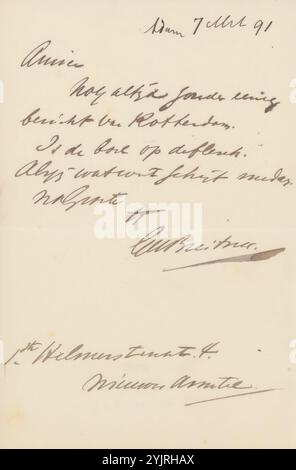 Adam 7 Mrt 91
Amice
Nog altijd zonder eenig
bericht van Rotterdam.
Is de boel op
Als je wat weet schrijf me dan
na Groete
tt
GHBreitner.
1ste Helmersstraat. 4.
Nieuwer Amstel
alamy
Image ID: 2YJRHAX
www.alamy.com